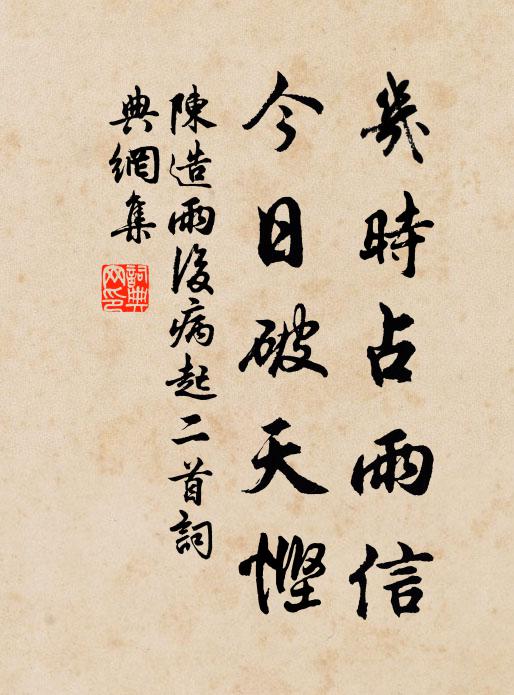 幾時占雨信
今日破天慳
陳造雨後病起二首詞
典網集
詞典網印